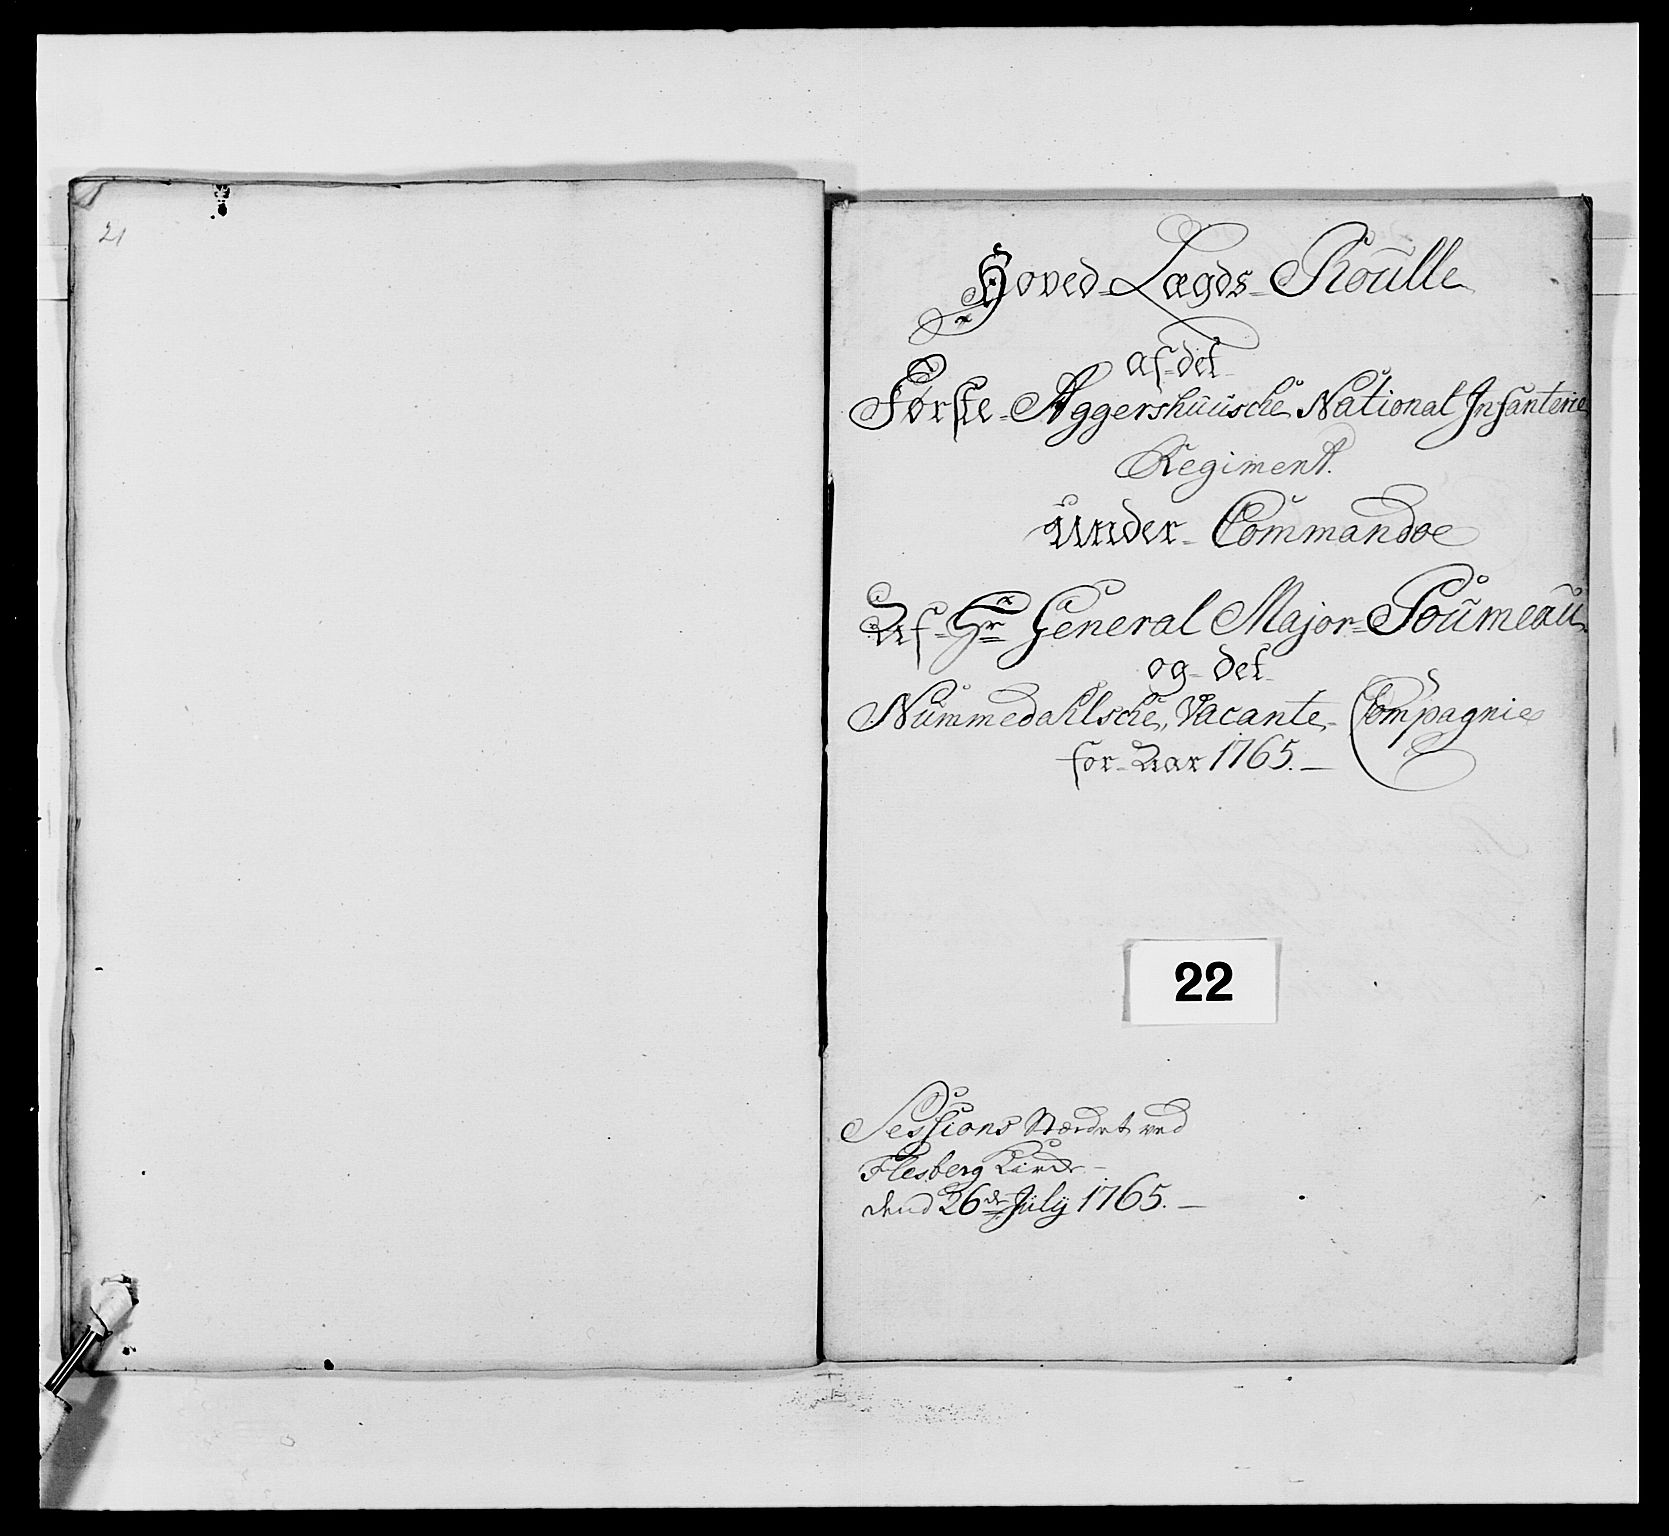 21
Hoved-Lægds-Roülle
af det
Første-Aggershüüsche National Infanterie
Regiment.
Under-Commandoe
Af-Hr General Major-Poümeaü
og-det
Nümmedahlsche, Vacante-Compagnie
for-Aar 1765.
22
Sessions Stædet ved
Flesberg Kirche
dend 26de Jüly 1765.